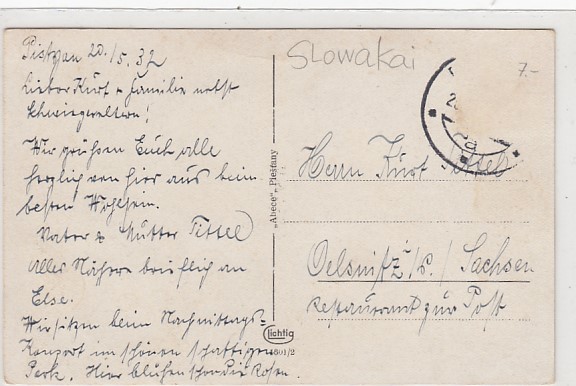 Pistyan 20./5. 32
Lieber Kurt & Familie nebst
Schwiegereltern!
Wir grüßen Euch alle
herzlich von hier aus beim
besten Wohlsein.
Vater & Mutter Tittel
alles Nähere brieflich an
Else.
Wir sitzen beim Nachmittags-
Konzert im schönen schattigen
Park. Hier blühen schon die Rosen.
„Abece“, Piešťany
Lichtig
801/2
Slowakai
7.-
Herrn Kurt Tittel
Oelsnitz i/V. / Sachsen
Restaurant zur Post